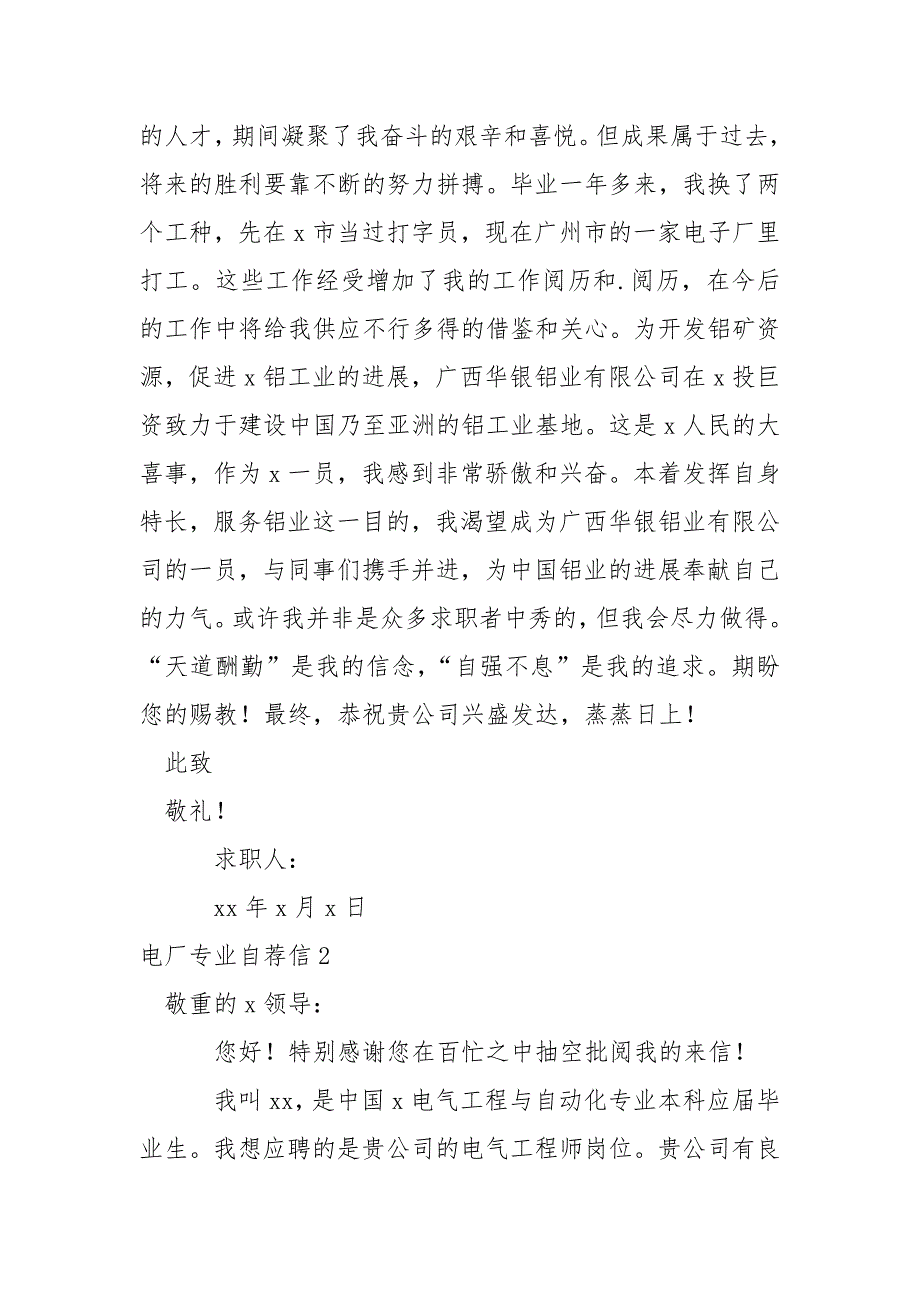 的人才，期间凝聚了我奋斗的艰辛和喜悦。但成果属于过去，
将来的胜利要靠不断的努力拼搏。毕业一年多来，我换了两
个工种，先在 x 市当过打字员，现在广州市的一家电子厂里
打工。这些工作经受增加了我的工作阅历和.阅历，在今后
的工作中将给我供应不行多得的借鉴和关心。为开发铝矿资
源，促进 x 铝工业的进展，广西华银铝业有限公司在 x 投巨
资致力于建设中国乃至亚洲的铝工业基地。这是 x 人民的大
喜事，作为 x 一员，我感到非常骄傲和兴奋。本着发挥自身
特长，服务铝业这一目的，我渴望成为广西华银铝业有限公
司的一员，与同事们携手并进，为中国铝业的进展奉献自己
的力气。或许我并非是众多求职者中秀的，但我会尽力做得。
“天道酬勤”是我的信念，“自强不息”是我的追求。期盼
您的赐教！最终，恭祝贵公司兴盛发达，蒸蒸日上！
此致
敬礼！
求职人：
xx 年 x 月 x 日
电厂专业自荐信 2
敬重的 x 领导：
您好！特别感谢您在百忙之中抽空批阅我的来信！
我叫 xx，是中国 x 电气工程与自动化专业本科应届毕
业生。我想应聘的是贵公司的电气工程师岗位。贵公司有良